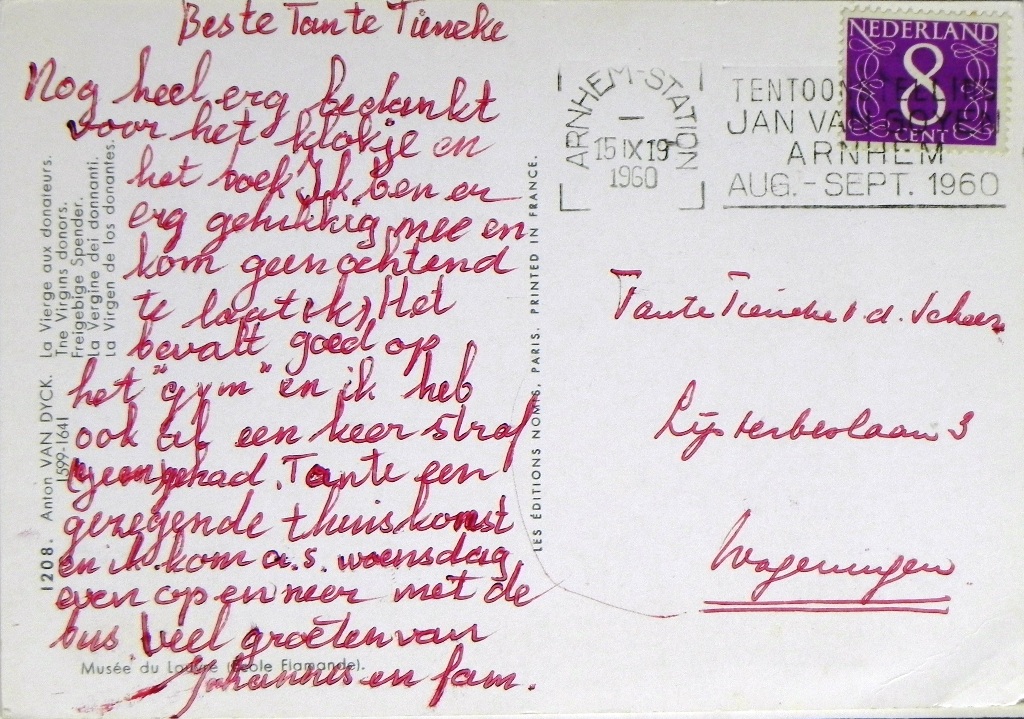 Beste Tante Tieneke
Nog heel erg bedankt
voor het klokje en
het boek, Ik ben er
erg gelukkig mee en
kom geen ochtend
te laat (k), Het
bevalt goed op
het "gym" en ik heb
ook al een keer straf
gehad. Tante een
gezegende thuiskomst
en ik kom a.s. woensdag
even op en neer met de
bus Veel groeten van
Johannes en fam.
1208. Anton VAN DYCK. La Vierge aux donateurs.
1599-1641 The Virgins donors.
Freigebige Spender.
La Vergine dei donnanti.
La Virgen de los donantes.
Musée du Louvre (École Flamande).
LES ÉDITIONS NOMIS, PARIS. PRINTED IN FRANCE.
ARNHEM-STATION
15 IX 19
1960
TENTOONSTELLING
JAN VAN GOYEN
ARNHEM
AUG.-SEPT. 1960
NEDERLAND
8
CENT
Tante Tieneke v. d. Scheer
Lijsterbeslaan 3
Wageningen